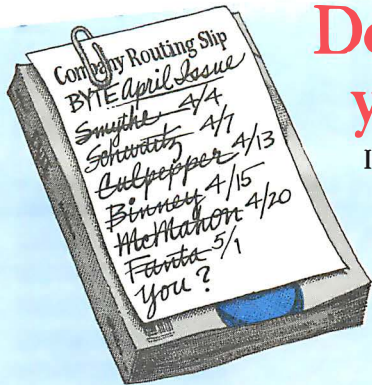 Company Routing Slip
BYTE April Issue
Smythe 4/4
Schwartz 4/7
Culpepper 4/13
Binney 4/15
McMahon 4/20
Fanta 5/1
You?
D
y
I